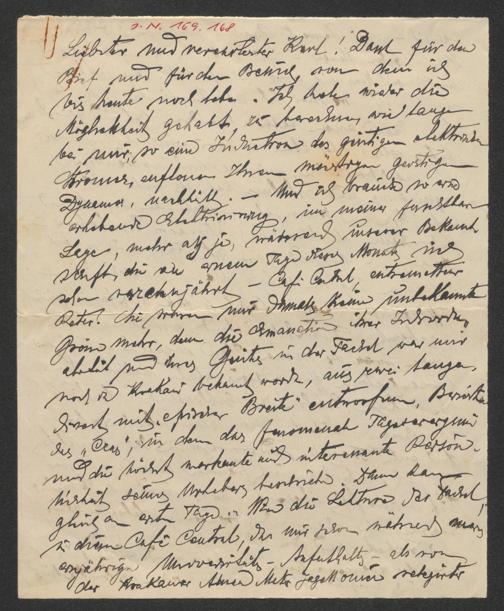 J.N. 169.168
Liebster und verehrtester Karl! Dank für den
Brief und für den Besuch, von dem ich
bis heute noch lebe. Ich habe wieder die
Möglichkeit gehabt, zu bewerten, wie lange
bei mir, so eine Induktion des geistigen elektrischen
Stromes, entflossen Ihrem mächtigen geistigen
Dynamo, nachhält. — Und ich brauche so eine
erhebende Elektrisierung, in meiner furchtbaren
Lage, mehr als je, während unserer Bekannt-
schaft, die an einem Tage dieses Monats
schon verzehnjährt — Café Central,
Peter! Sie waren mir damals keine unbekannte
Größe mehr, denn die Emanation Ihrer
und Ihres Geistes in der Fackel war mir
noch in Krakau bekannt worden, aus zwei langen,
mit epischer Breite entworfenen, Berichten
des "Czas", in dem das fenomenale
und die höchst markante und interessante Persön-
lichkeit seines Urhebers Dann kam
gleich am ersten Tage in Wien die Lektüre der Fackel,
in diesem Café Central, das mir schon während meines
einjährigen Universitäts-Aufenthalts — als von
der Krakauer Alma Mater